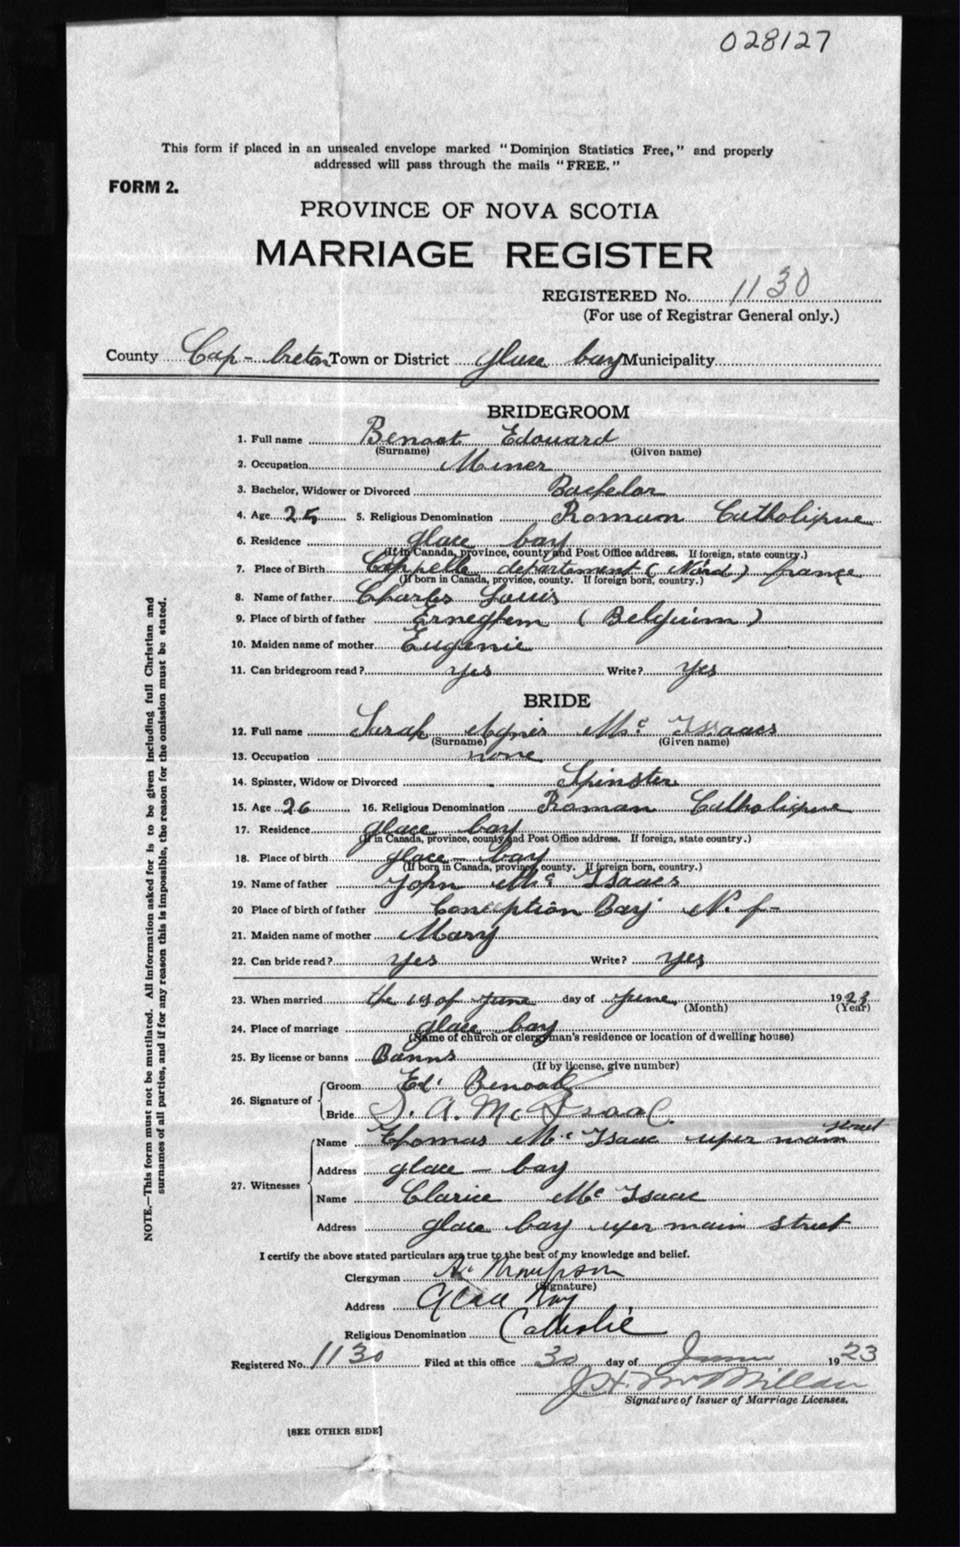 028127
This form if placed in an unsealed envelope marked "Dominion Statistics Free," and properly
addressed will pass through the mails "FREE."
FORM 2.
PROVINCE OF NOVA SCOTIA
MARRIAGE REGISTER
REGISTERED No. 1130
(For use of Registrar General only.)
County Cap-breton Town or District glace bay Municipality
BRIDEGROOM
1. Full name Benoot Edouard
(Surname) (Given name)
2. Occupation Miner
3. Bachelor, Widower or Divorced Bachelor
4. Age 25 5. Religious Denomination Roman Catholique
6. Residence glace bay
(If in Canada, province, county and Post Office address. If foreign, state country.)
7. Place of Birth Cappelle departement (Nord) france
(If born in Canada, province, county. If foreign born, country.)
8. Name of father Charles Louis
9. Place of birth of father Erneghem (Belgium)
10. Maiden name of mother Eugenie
11. Can bridegroom read? yes Write? yes
BRIDE
12. Full name Sarah Agnes Mc Isaacs
(Surname) (Given name)
13. Occupation none
14. Spinster, Widow or Divorced Spinster
15. Age 26 16. Religious Denomination Roman Catholique
17. Residence glace bay
(If in Canada, province, county and Post Office address. If foreign, state country.)
18. Place of birth glace-bay
(If born in Canada, province, county. If foreign born, country.)
19. Name of father John Mc Isaacs
20 Place of birth of father Conception Bay N. f-
21. Maiden name of mother Mary
22. Can bride read? yes Write? yes
23. When married the of june day of june 1923
(Month) (Year)
24. Place of marriage glace bay
(Name of church or clergyman's residence or location of dwelling house)
25. By license or banns Banns
(If by license, give number)
26. Signature of Groom Ed. Benoot
Bride S. A. McIsaac.
27. Witnesses Name Thomas Mc Isaac uper main street
Address glace-bay
Name Clarice Mc Isaac
Address glace bay uper main street
I certify the above stated particulars are true to the best of my knowledge and belief.
Clergyman Thompson
(Signature)
Address Glace Bay
Religious Denomination Catholic
Registered No. 1130 Filed at this office 30 day of June 1923
J H McMillan
Signature of Issuer of Marriage Licenses.
[SEE OTHER SIDE]
NOTE.—This form must not be mutilated. All information asked for is to be given including full Christian and
surnames of all parties, and if for any reason this is impossible, the reason for the omission must be stated.